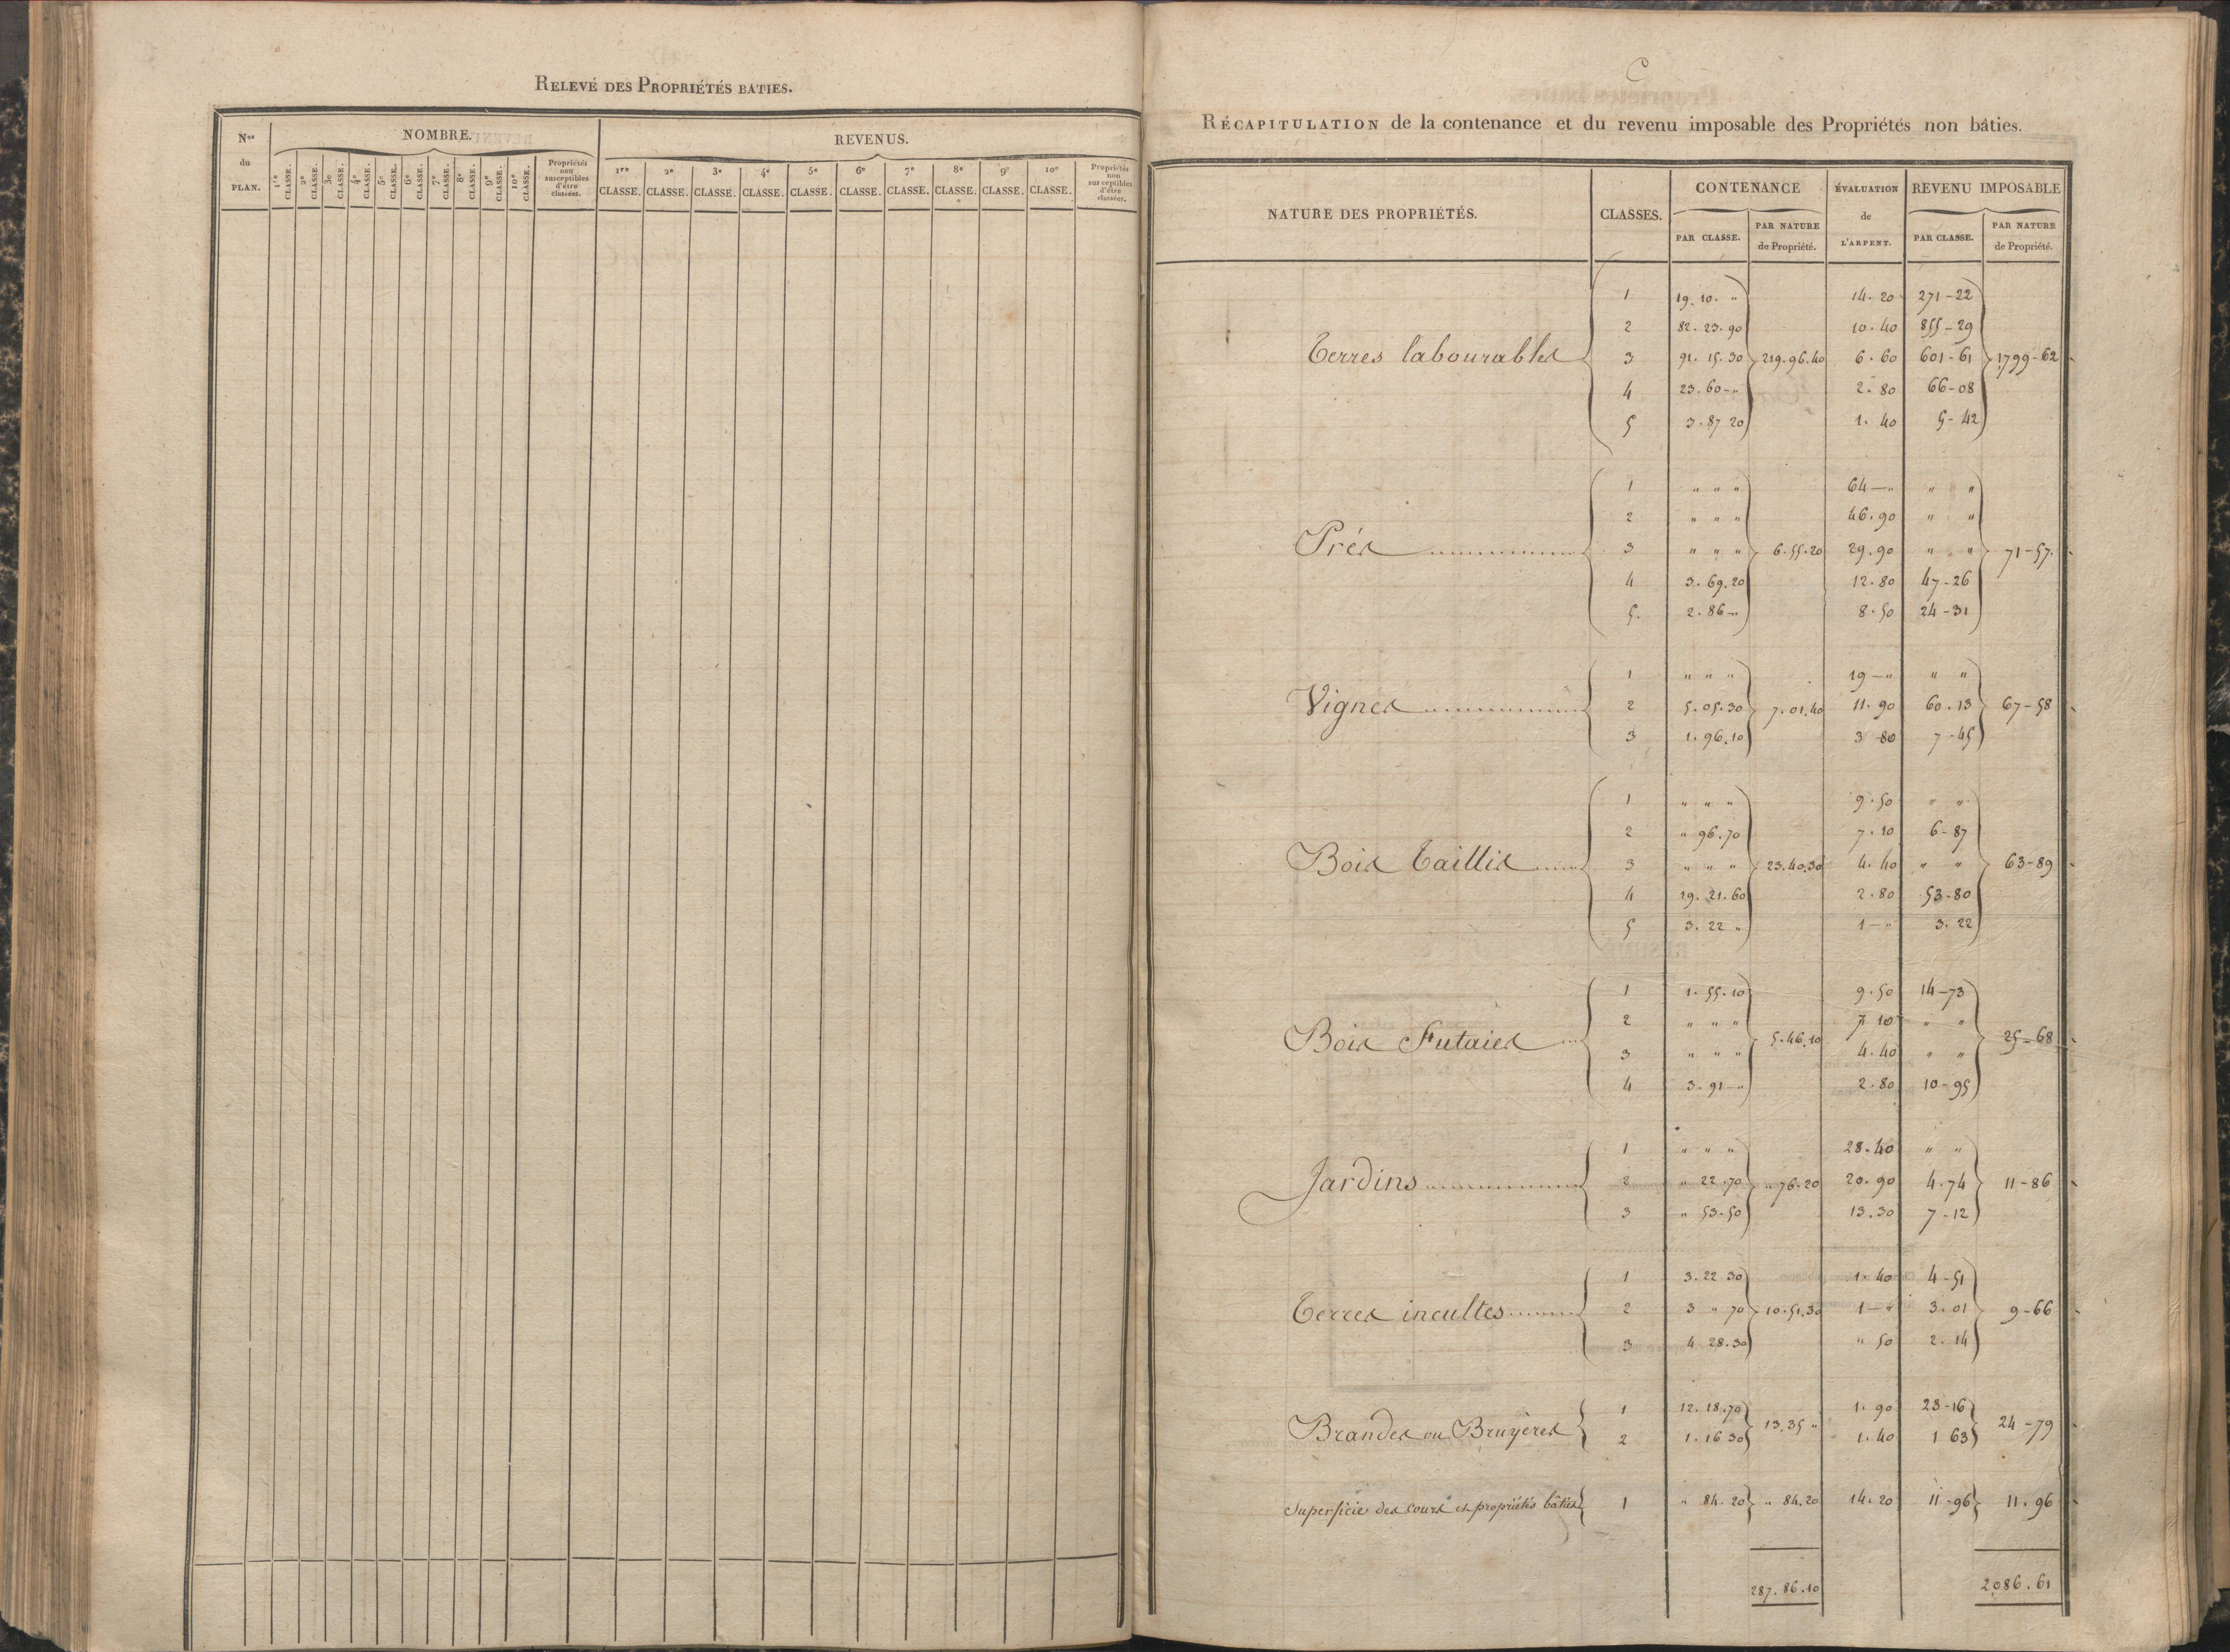 RELEVÉ DES PROPRIÉTÉS BATIES.
Nos du PLAN. NOMBRE. REVENUS.
1re CLASSE. 2e CLASSE. 3e CLASSE. 4e CLASSE. 5e CLASSE. 6e CLASSE. 7e CLASSE. 8e CLASSE. 9e CLASSE. 10e CLASSE. Propriétés non susceptibles d'être classées.
1re CLASSE. 2e CLASSE. 3e CLASSE. 4e CLASSE. 5e CLASSE. 6e CLASSE. 7e CLASSE. 8e CLASSE. 9e CLASSE. 10e CLASSE. Propriétés non susceptibles d'être classées.
C
RÉCAPITULATION de la contenance et du revenu imposable des Propriétés non bâties.
NATURE DES PROPRIÉTÉS. CLASSES. CONTENANCE ÉVALUATION de L'ARPENT. REVENU IMPOSABLE
PAR CLASSE. PAR NATURE de Propriété. PAR CLASSE. PAR NATURE de Propriété.
1 19. 10. " 14. 20 271-22
2 82. 23. 90 10. 40 855-29
Terres labourables 3 91. 15. 30 219. 96. 40 6. 60 601-61 1799-62
4 23. 60-" 2. 80 66-08
5 3. 87 20 1. 40 5-42
1 " " " 64-" " "
2 " " " 46. 90 " "
Prés 3 " " " 6. 55. 20 29. 90 " " 71-57.
4 3. 69. 20 12. 80 47-26
5. 2. 86-" 8. 50 24-31
1 " " " 19-" " "
Vignes 2 5. 05. 30 7. 01. 40 11. 90 60. 13 67-58
3 1. 96. 10 3 80 7-45
1 " " " 9. 50 " "
2 " 96. 70 7. 10 6-87
Bois Taillis 3 " " " 23. 40. 30 4. 40 " " 63-89
4 19. 21. 60 2. 80 53. 80
5 3. 22 " 1-" 3. 22
1 1. 55. 10 9. 50 14-73
2 " " " 7. 10 " "
Bois Futaies 3 " " " 5. 46. 10 4. 40 " " 25-68
4 3. 91-" 2. 80 10-95
1 " " " 28. 40 " "
Jardins 2 " 22. 70 " 76. 20 20. 90 4. 74 11-86
3 " 53. 50 13. 30 7-12
1 3. 22 30 1. 40 4-51
Terres incultes 2 3 " 70 10. 51. 30 1-" 3. 01 9-66
3 4 28. 30 " 50 2. 14
1 12. 18. 70 1. 90 23-16
Brandes ou Bruyères 13. 35 " 24-79
2 1. 16 30 1. 40 1 63
Superficie des cours et propriétés bâties 1 " 84. 20 " 84. 20 14. 20 11-96 11. 96
287. 86. 10 2086. 61